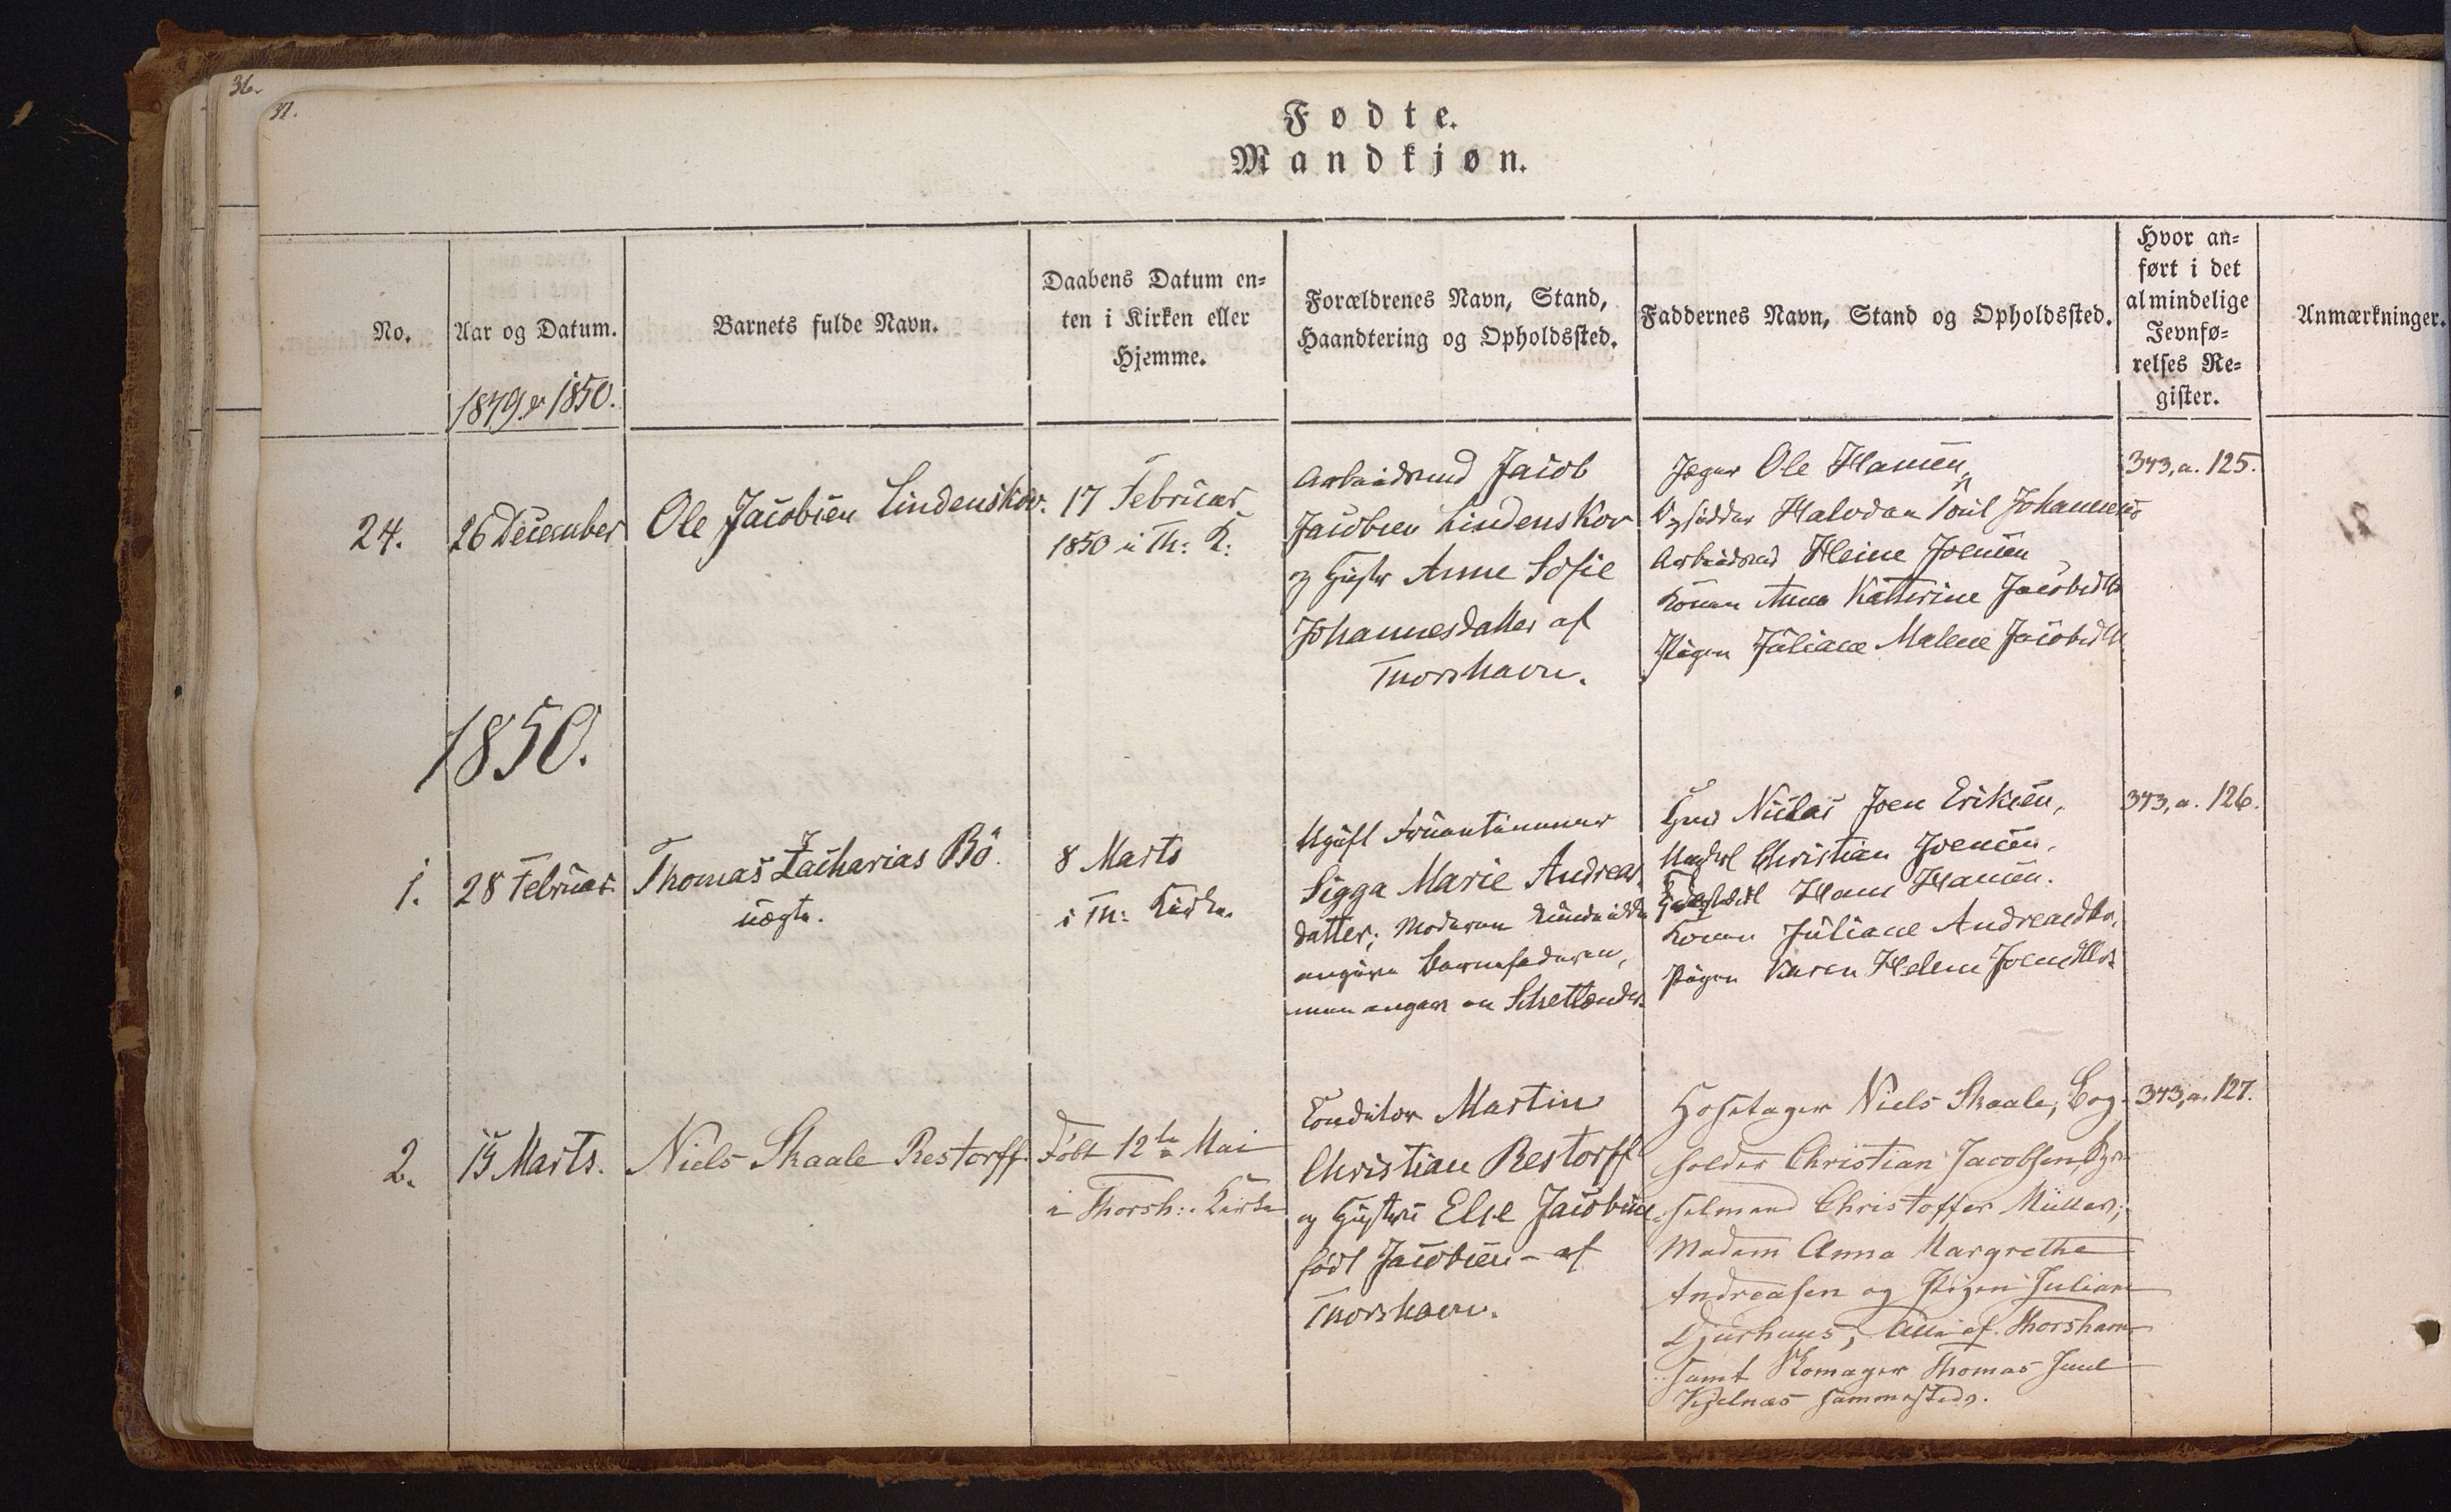 36.
37.
Fødte.
Mandkjøn.
No.
Aar og Datum.
1849 & 1850.
Barnets fulde Navn.
Daabens Datum en=
ten i Kirken eller
Hjemme.
Forældrenes Navn, Stand,
Haandtering og Opholdssted.
Faddernes Navn, Stand og Opholdssted.
Hvor an=
ført i det
almindelige
Jevnfø=
relses Re=
gister.
Anmærkninger.
24.
26 December
Ole Jacobsen Lindenskov.
17 Februar
1850 i Th: K:
Arbeidsmd Jacob
Jacobsen Lindenskov
og Hustr Anne Sofie
Johannesdatter af
Thorshavn.
Jæger Ole Hansen,
Halvdan Poul Johannes
Arbeidsmd Heine Joensen
Konen Anna Kathrine Jacobsdtr
Pigen Juliane Malene Jacobsdtr
343, a. 125.
1850.
1.
28 Februar
Thomas Zacharias Bö.
uægte.
8 Marts
i Th: Kirke.
Ugift Fruentimmer
Sigga Marie Andreas
datter; Moderen kunde ikke
angive Barnefaderen,
men angav en Schetlænder.
Niclas Joen Eriksen,
Christian Joensen,
Hans Hansen.
Konen Juliane Andreasdtr,
Pigen Karen Helene Joensdtr.
343, a. 126.
2.
15 Marts.
Niels Skaale Restorff
Døbt 12te Mai
i Thorsh: Kirke
Conditor Martin
Christian Restorff
og Hustru Else Jacobine
född Jacobsen - af
Thorshavn.
Niels Skaale, Bog
holder Christian Jacobsen,
selmand Christoffer Müller;
Madam Anna Margrethe
Andreasen og Pigen Juliane
Djurhuus, Alle af Thorshavn
samt Skomager Thomas Juul
Kjelnæs sammesteds.
343, a. 127.